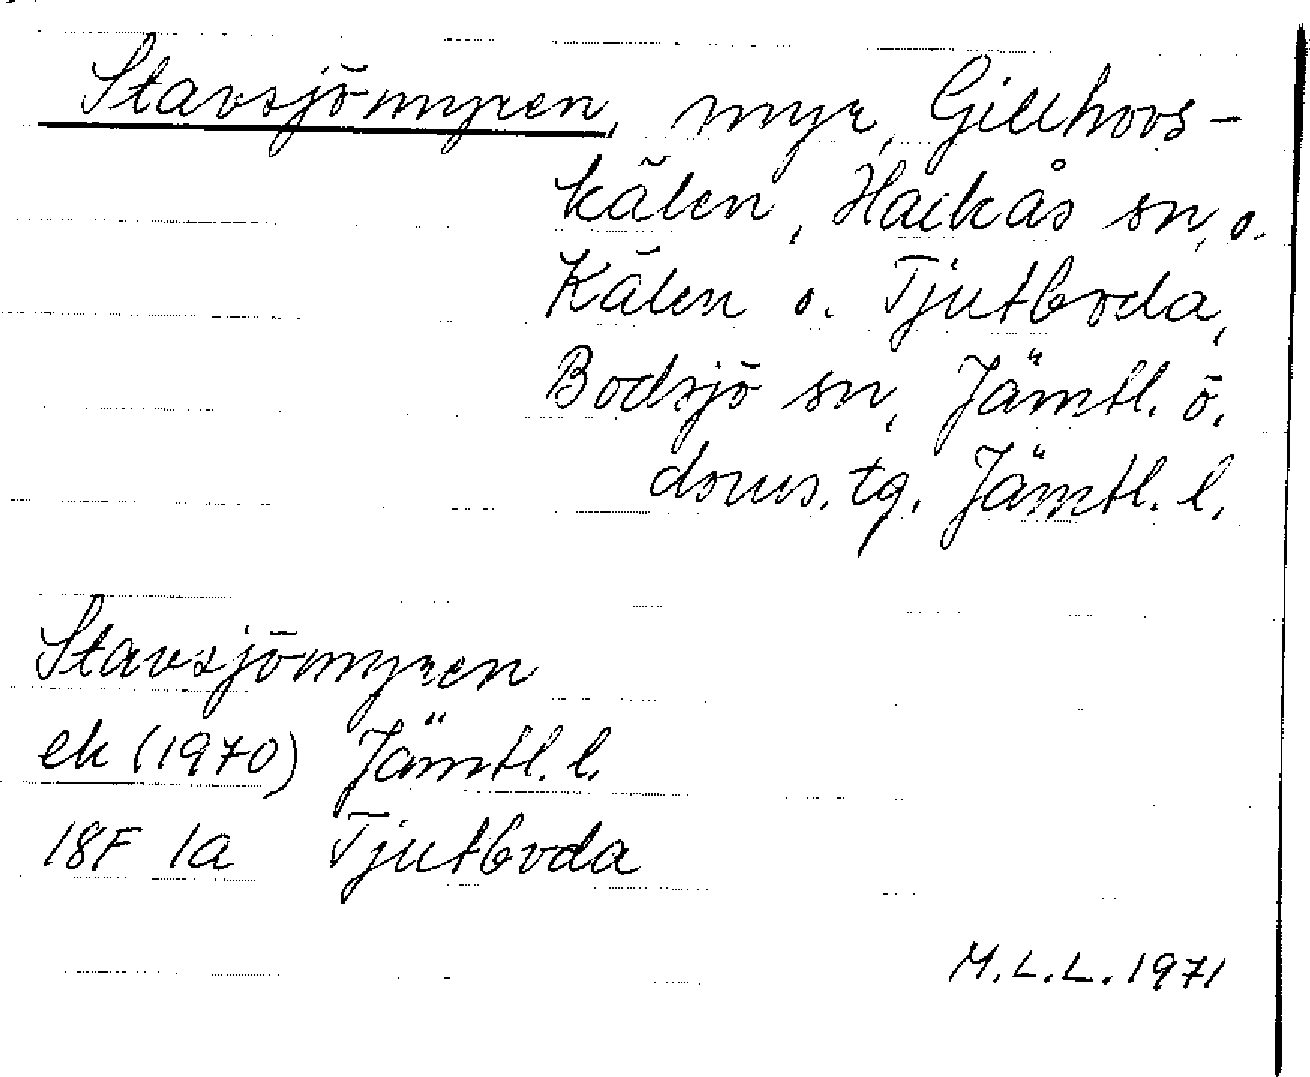 Stavsjömyren, myr, Gillhovs-
kälen, Hackås sn, o.
Kälen o. Tjutboda,
Bodsjö sn, Jämtl. ö.
doms. tg. Jämtl. l.
Stavsjömyren
ek (1970) Jämtl. l.
18F 1a Tjutboda
M.L.L. 1971